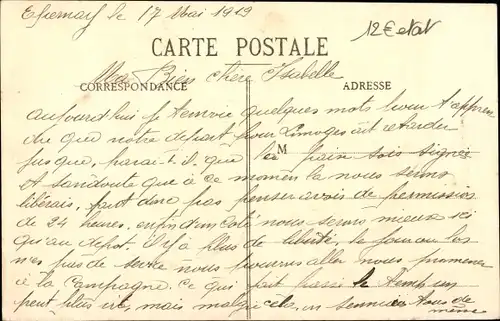 Epernay le 17 Mai 1919
12€ etat
CARTE POSTALE
Ma Bien chère Isabelle
CORRESPONDANCE
ADRESSE
aujourd'hui je t'envoie quelques mots pour t'appren
dre que notre depart pour Limoges est retardé
M
jusque, parait-il que la paix sois signée
et sandoute que à ce moment la nous serons
libérais, faut donc pas penser avois de permission
de 24 heures, enfin d'un coté nous serons mieux ici
qu'au depot. il y à plus de liberté, le jour ou los
n'es pas de service nous pourrons aller nous promener
à la campagne, ce qui fait passer le temps un
peut plus vite, mais malgré cela, on s'ennuie tous de
même